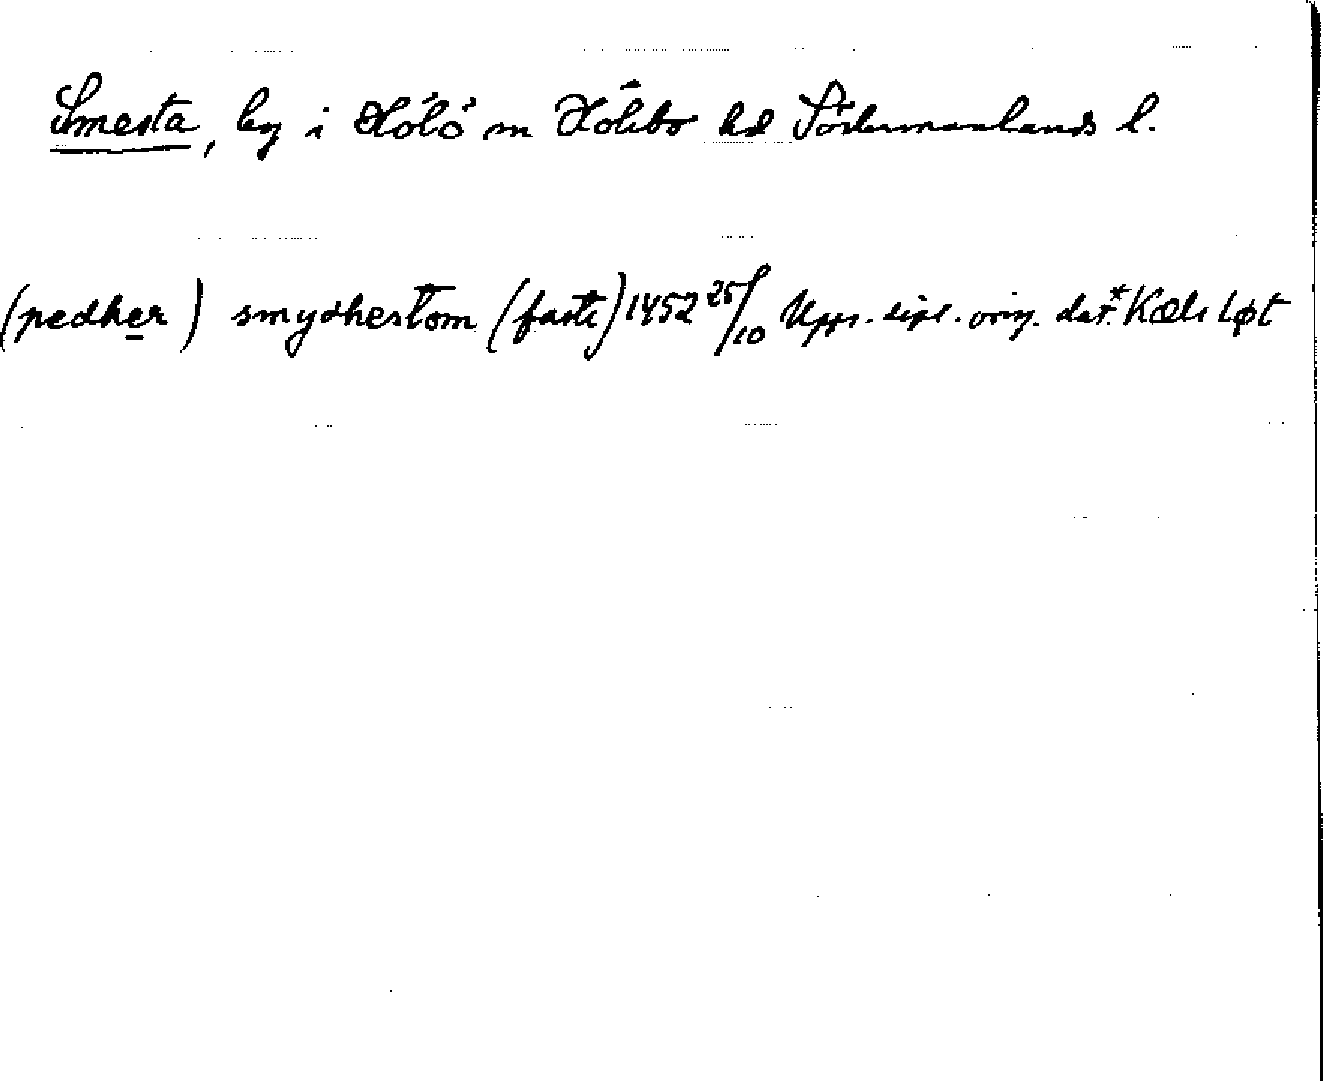 Smesta, by i Hölö sn Hölebo hd Södermanlands l.
(pedher) smydhestom (faste) 1452 25/10 Upps. dipl. orig. dat.* Kæls Løt